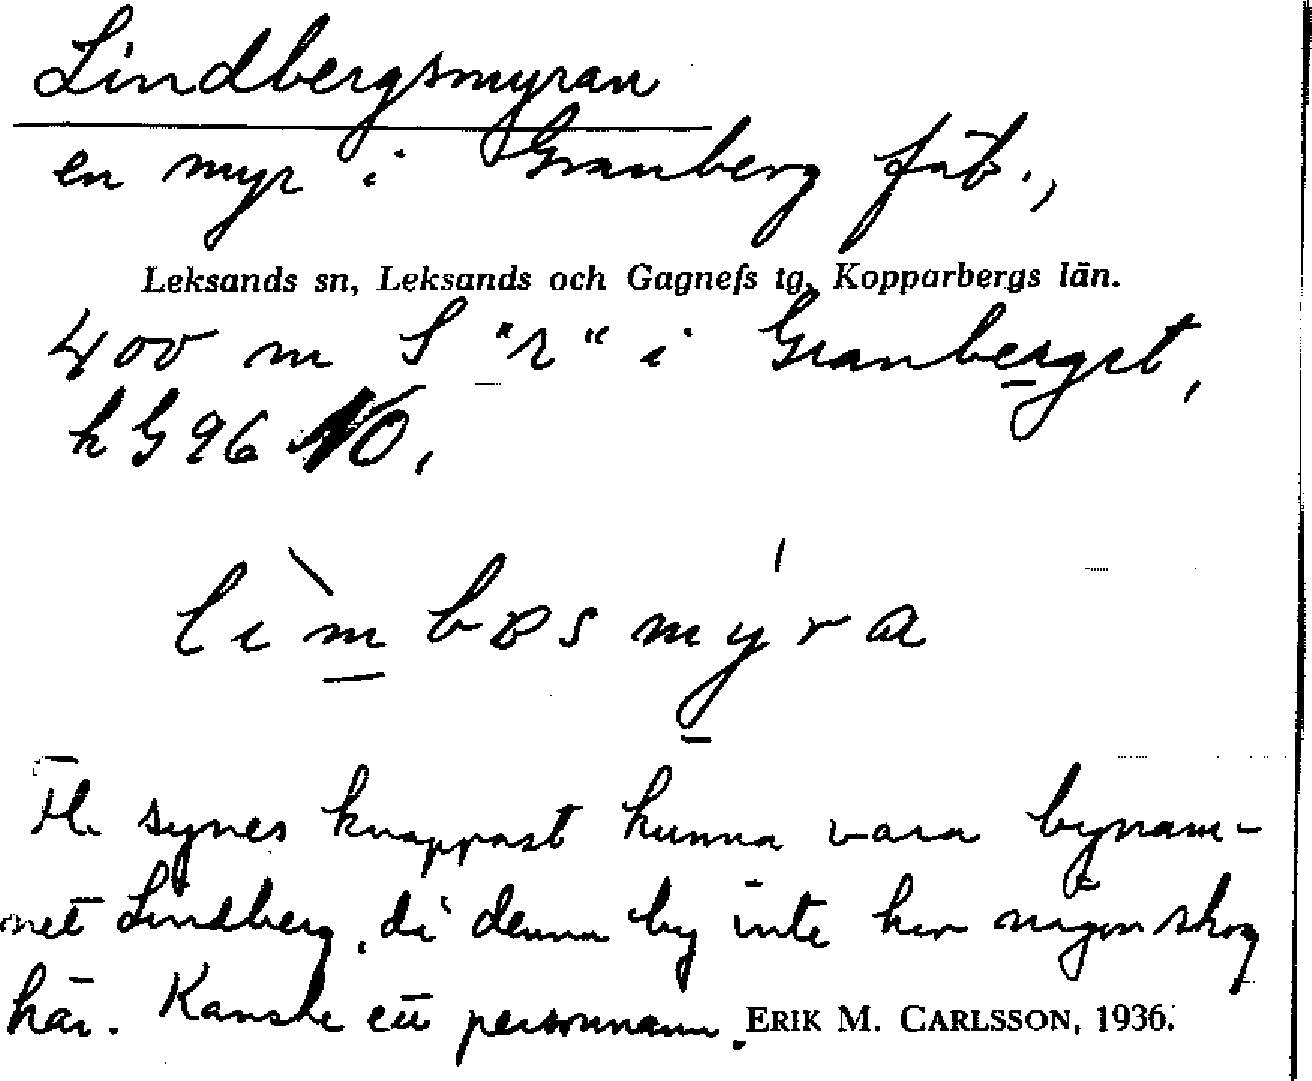 Lindbergsmyran
en myr i Granberg fäb.,
Leksands sn, Leksands och Gagnefs tg, Kopparbergs län.
400 m S "r" i Granberget,
k G 96 10,
lìmbəsmýra
Fl. synes knappast kunna vara bynam-
net Lindberg, då denna by inte har någon skog
här. Kanske ett personnamn.
ERIK M. CARLSSON, 1936.